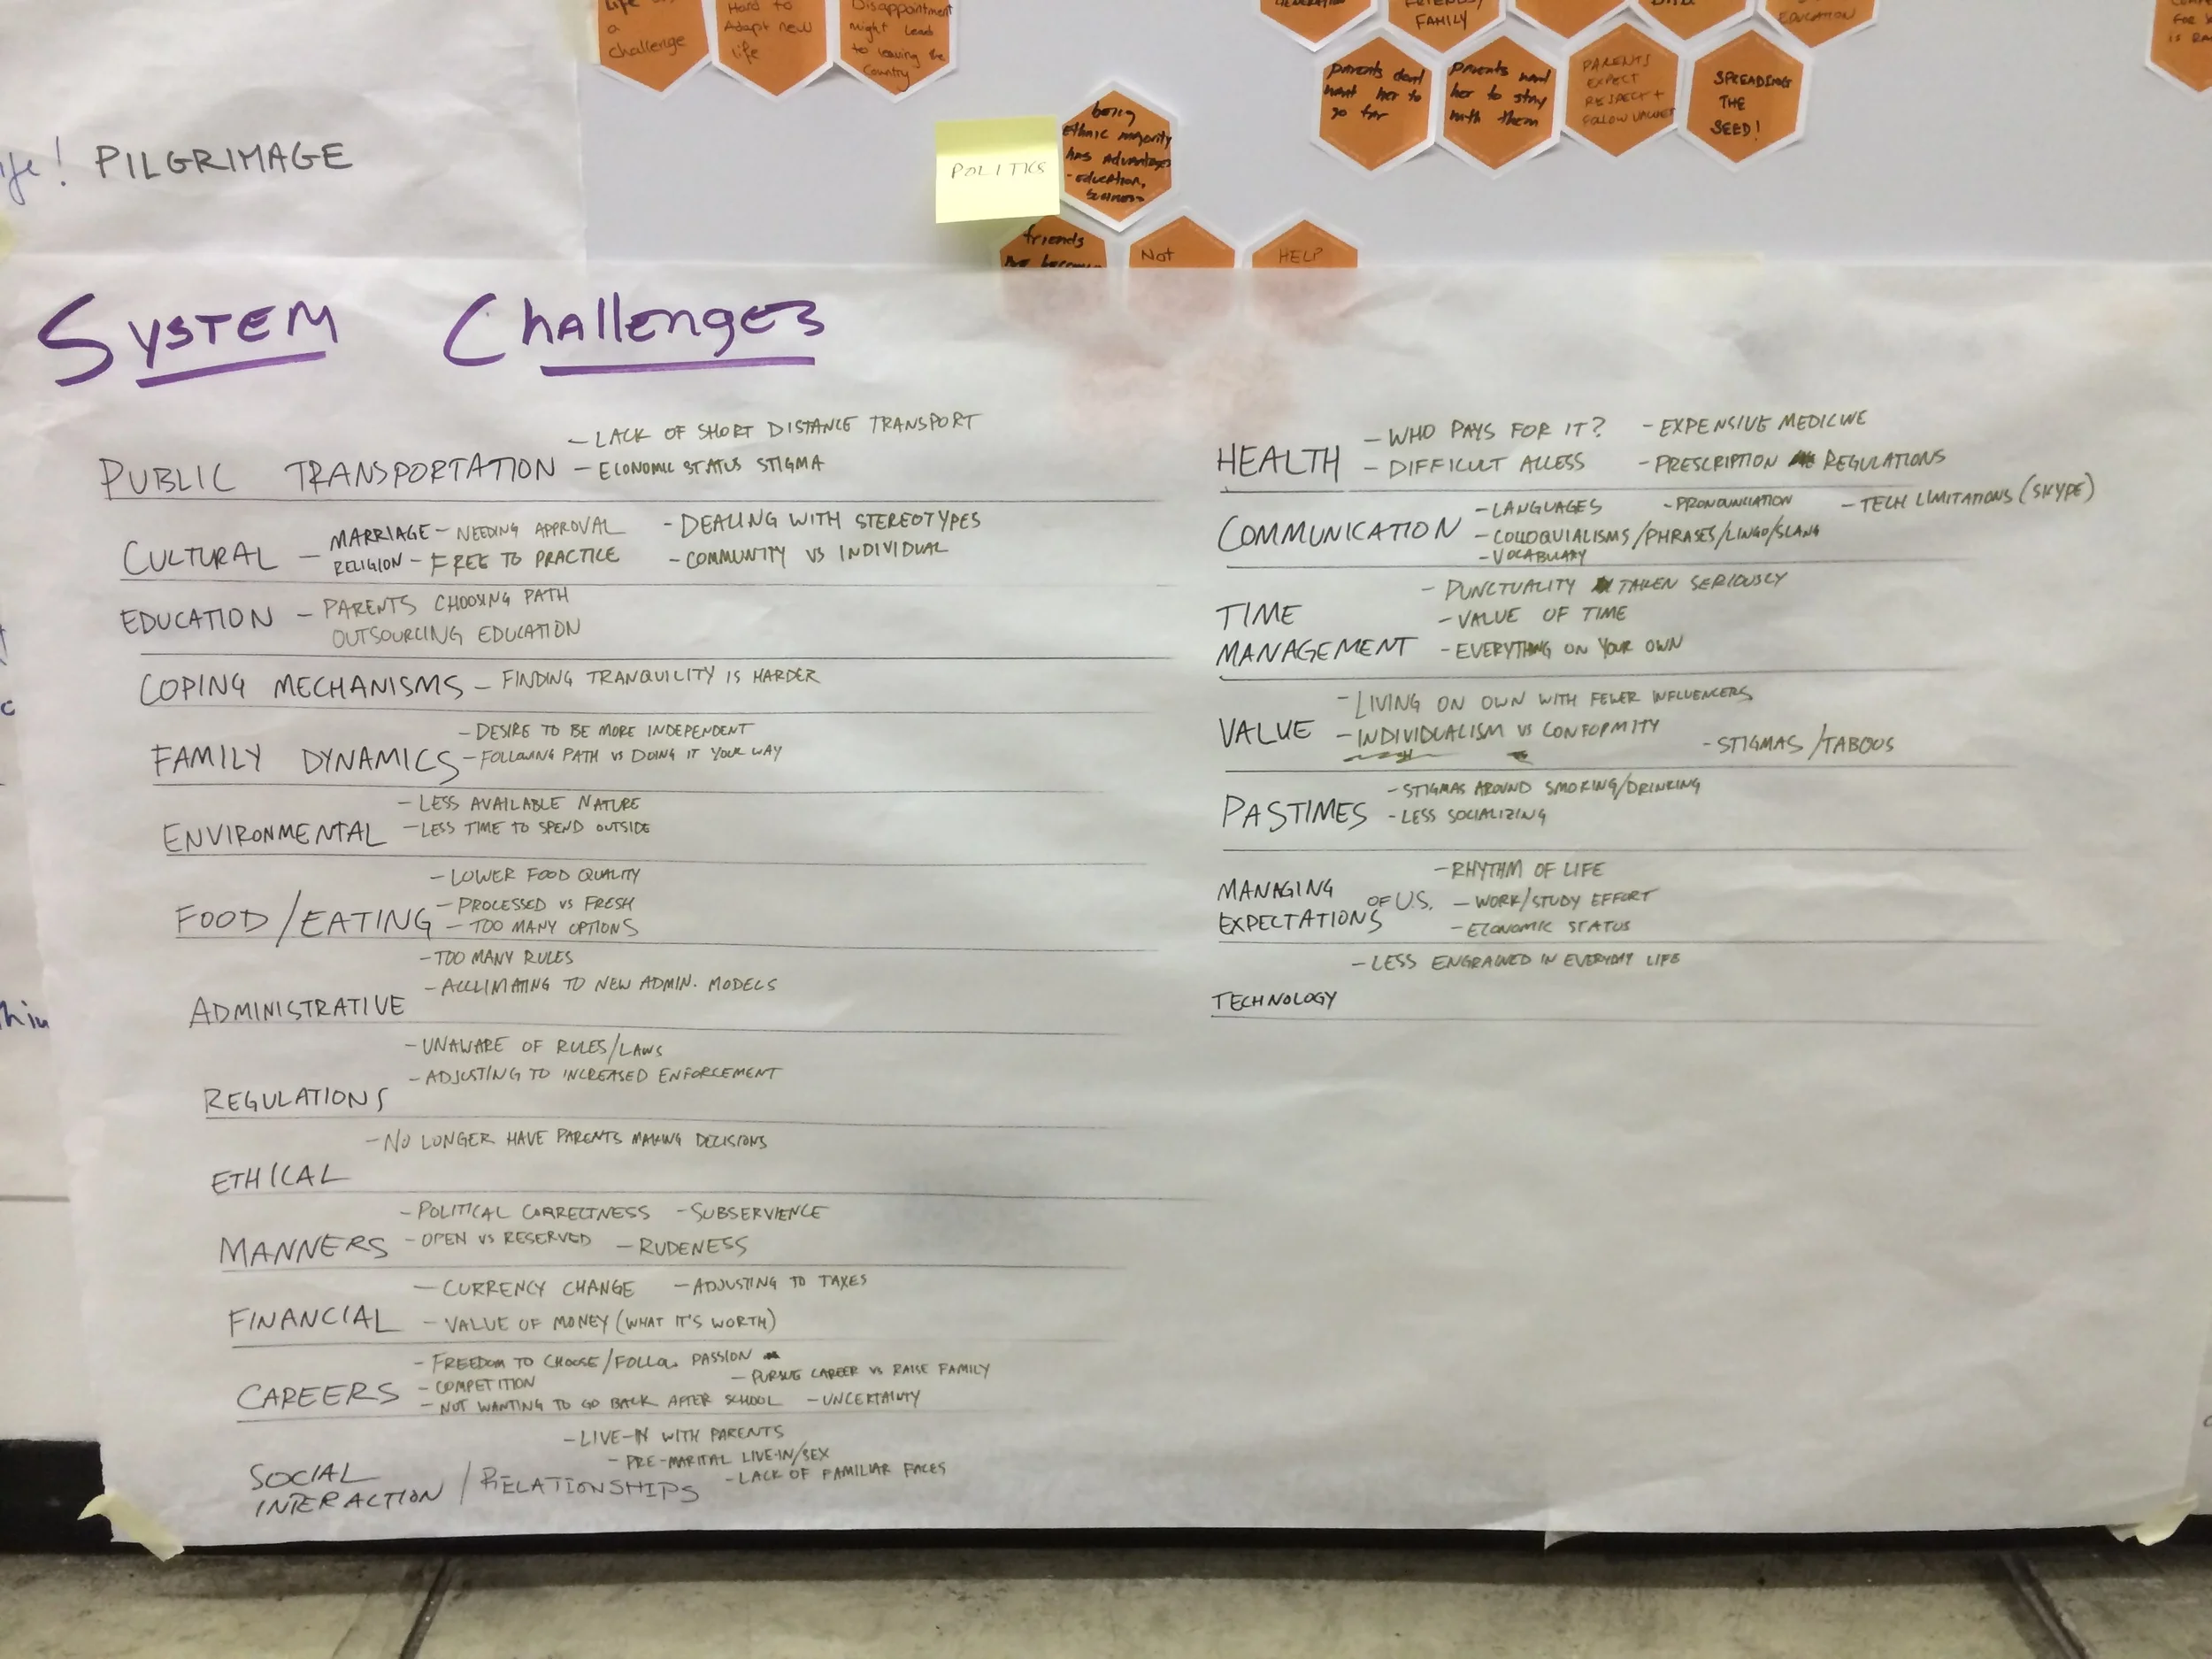 a
challenge
Hard to
Adapt new
life
Disappointment
might lead
to leaving the
Country
FAMILY
EDUCATION
parents dont
want her to
go far
parents want
her to stay
with them
PARENTS
EXPECT
RESPECT +
FOLLOW VALUES
SPREADING
THE
SEED!
POLITICS
being
ethnic majority
has advantages
- education,
business
friends
Not
HELP
! PILGRIMAGE
SYSTEM Challenges
PUBLIC TRANSPORTATION
- LACK OF SHORT DISTANCE TRANSPORT
- ECONOMIC STATUS STIGMA
CULTURAL
- MARRIAGE - NEEDING APPROVAL
RELIGION - FREE TO PRACTICE
- DEALING WITH STEREOTYPES
- COMMUNITY VS INDIVIDUAL
EDUCATION - PARENTS CHOOSING PATH
OUTSOURCING EDUCATION
COPING MECHANISMS - FINDING TRANQUILITY IS HARDER
FAMILY DYNAMICS
- DESIRE TO BE MORE INDEPENDENT
- FOLLOWING PATH VS DOING IT YOUR WAY
ENVIRONMENTAL
- LESS AVAILABLE NATURE
- LESS TIME TO SPEND OUTSIDE
FOOD/EATING
- LOWER FOOD QUALITY
- PROCESSED VS FRESH
- TOO MANY OPTIONS
ADMINISTRATIVE
- TOO MANY RULES
- ACCLIMATING TO NEW ADMIN. MODELS
REGULATIONS
- UNAWARE OF RULES/LAWS
- ADJUSTING TO INCREASED ENFORCEMENT
ETHICAL
- NO LONGER HAVE PARENTS MAKING DECISIONS
MANNERS
- POLITICAL CORRECTNESS - SUBSERVIENCE
- OPEN VS RESERVED - RUDENESS
FINANCIAL
- CURRENCY CHANGE - ADJUSTING TO TAXES
- VALUE OF MONEY (WHAT IT'S WORTH)
CAREERS
- FREEDOM TO CHOOSE/FOLLOW PASSION
- COMPETITION
- PURSUE CAREER VS RAISE FAMILY
- NOT WANTING TO GO BACK AFTER SCHOOL - UNCERTAINTY
SOCIAL
INTERACTION / RELATIONSHIPS
- LIVE-IN WITH PARENTS
- PRE-MARITAL LIVE-IN/SEX
- LACK OF FAMILIAR FACES
HEALTH
- WHO PAYS FOR IT? - EXPENSIVE MEDICINE
- DIFFICULT ACCESS - PRESCRIPTION REGULATIONS
COMMUNICATION
- LANGUAGES - PRONOUNCIATION - TECH LIMITATIONS (SKYPE)
- COLLOQUIALISMS/PHRASES/LINGO/SLANG
- VOCABULARY
TIME
MANAGEMENT
- PUNCTUALITY TAKEN SERIOUSLY
- VALUE OF TIME
- EVERYTHING ON YOUR OWN
VALUE
- LIVING ON OWN WITH FEWER INFLUENCERS
- INDIVIDUALISM VS CONFORMITY
- STIGMAS/TABOOS
PASTIMES
- STIGMAS AROUND SMOKING/DRINKING
- LESS SOCIALIZING
MANAGING
EXPECTATIONS OF U.S.
- RHYTHM OF LIFE
- WORK/STUDY EFFORT
- ECONOMIC STATUS
TECHNOLOGY
- LESS ENGRAINED IN EVERYDAY LIFE